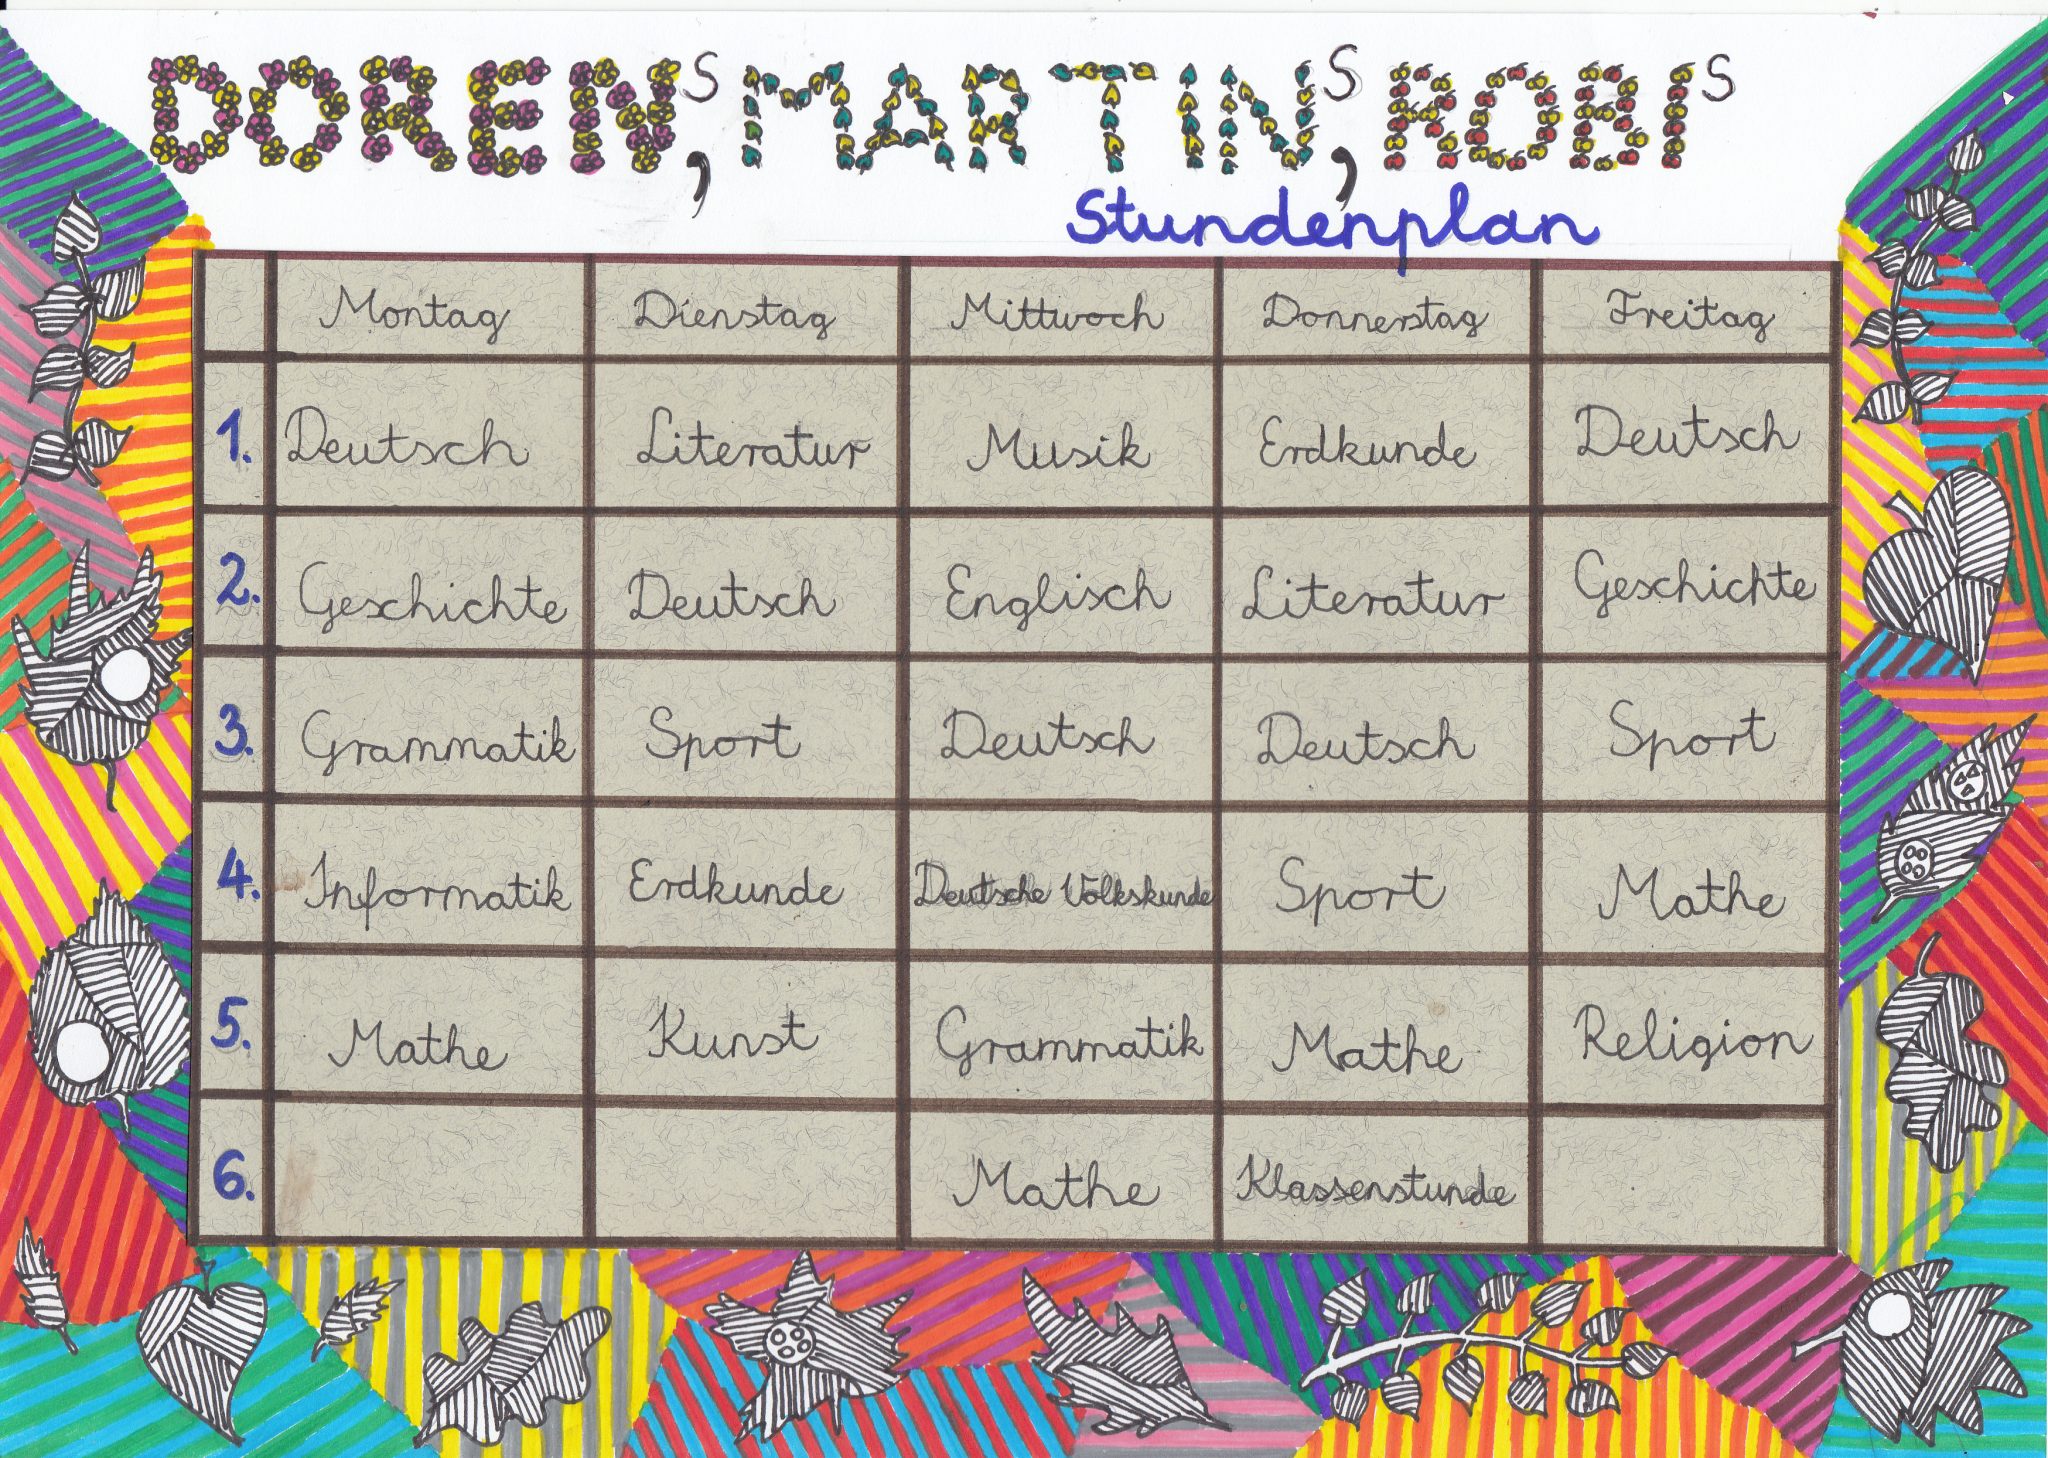 DORENs, MARTINs, ROBIs
Stundenplan
Montag Dienstag Mittwoch Donnerstag Freitag
1. Deutsch Literatur Musik Erdkunde Deutsch
2. Geschichte Deutsch Englisch Literatur Geschichte
3. Grammatik Sport Deutsch Deutsch Sport
4. Informatik Erdkunde Deutsche Volkskunde Sport Mathe
5. Mathe Kunst Grammatik Mathe Religion
6. Mathe Klassenstunde